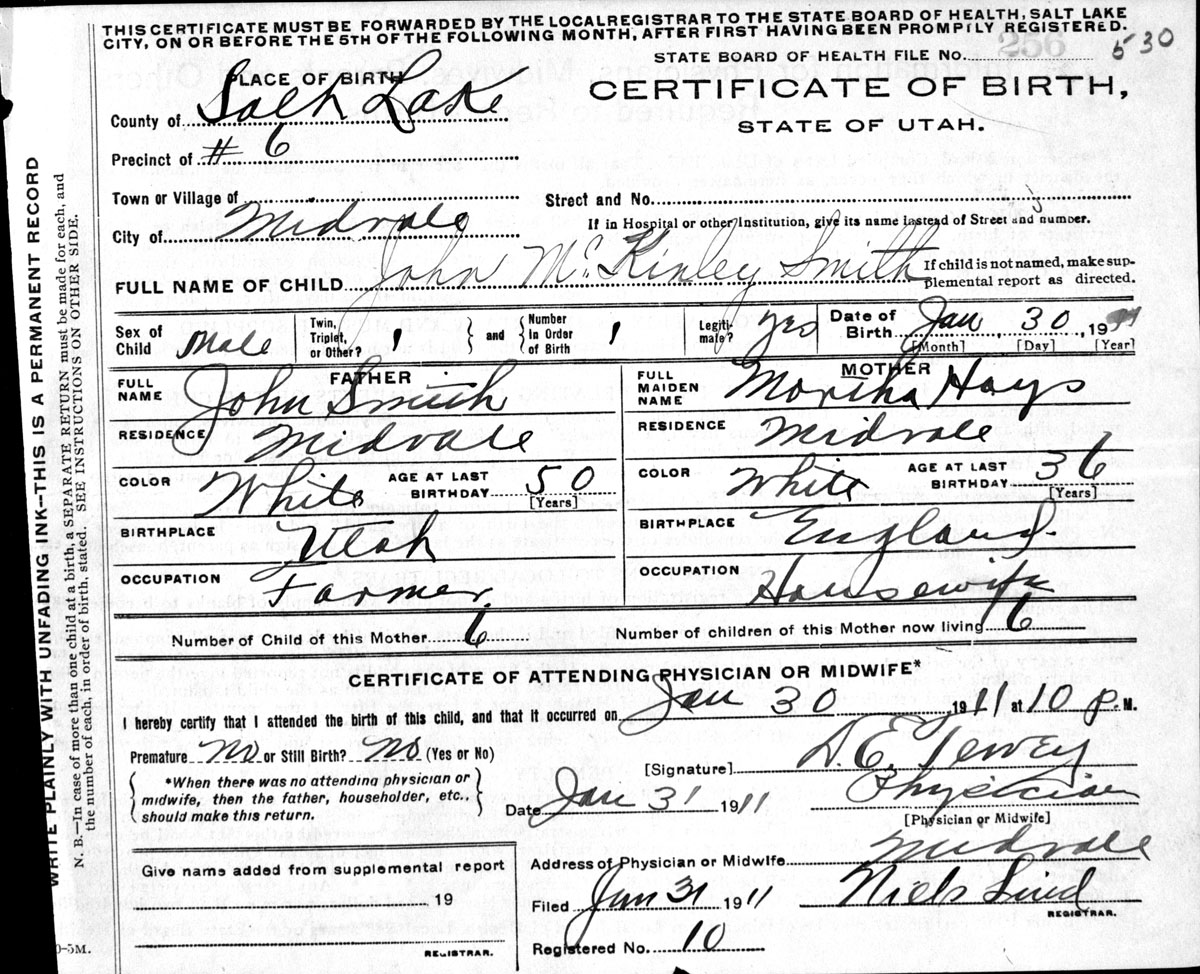 THIS CERTIFICATE MUST BE FORWARDED BY THE LOCAL REGISTRAR TO THE STATE BOARD OF HEALTH, SALT LAKE
CITY, ON OR BEFORE THE 5TH OF THE FOLLOWING MONTH, AFTER FIRST HAVING BEEN PROMPTLY REGISTERED.
STATE BOARD OF HEALTH FILE NO. 256 530
PLACE OF BIRTH
CERTIFICATE OF BIRTH,
STATE OF UTAH.
County of Salt Lake
Precinct of # 6
Town or Village of
Street and No.
City of Midvale
If in Hospital or other Institution, give its name instead of Street and number.
FULL NAME OF CHILD John McKinley Smith
If child is not named, make sup-
plemental report as directed.
Sex of Child Male
Twin, Triplet, or Other? 1 and Number In Order of Birth 1
Legiti- mate? Yes
Date of Birth Jan 30 19
[Month] [Day] [Year]
FATHER
MOTHER
FULL NAME John Smith
FULL MAIDEN NAME Hays
RESIDENCE Midvale
RESIDENCE Midvale
COLOR White AGE AT LAST BIRTHDAY 50 [Years]
COLOR White AGE AT LAST BIRTHDAY 36 (Years)
BIRTHPLACE Utah
BIRTHPLACE England
OCCUPATION Farmer.
OCCUPATION Housewife
Number of Child of this Mother 6
Number of children of this Mother now living 6
CERTIFICATE OF ATTENDING PHYSICIAN OR MIDWIFE*
I hereby certify that I attended the birth of this child, and that it occurred on Jan 30 1911 at 10 P. M.
Premature No or Still Birth? No (Yes or No)
[Signature] D. E.
*When there was no attending physician or
midwife, then the father, householder, etc.,
should make this return.
Date Jan 31 1911
Physician
[Physician or Midwife]
Address of Physician or Midwife Midvale
Give name added from supplemental report
19
REGISTRAR.
Filed Jan 31 1911 Niels Lind
REGISTRAR.
Registered No. 10
0-5M.
WRITE PLAINLY WITH UNFADING INK—THIS IS A PERMANENT RECORD
N. B.—In case of more than one child at birth, a SEPARATE RETURN must be made for each, and
the number of each, in order of birth, stated. SEE INSTRUCTIONS ON OTHER SIDE.